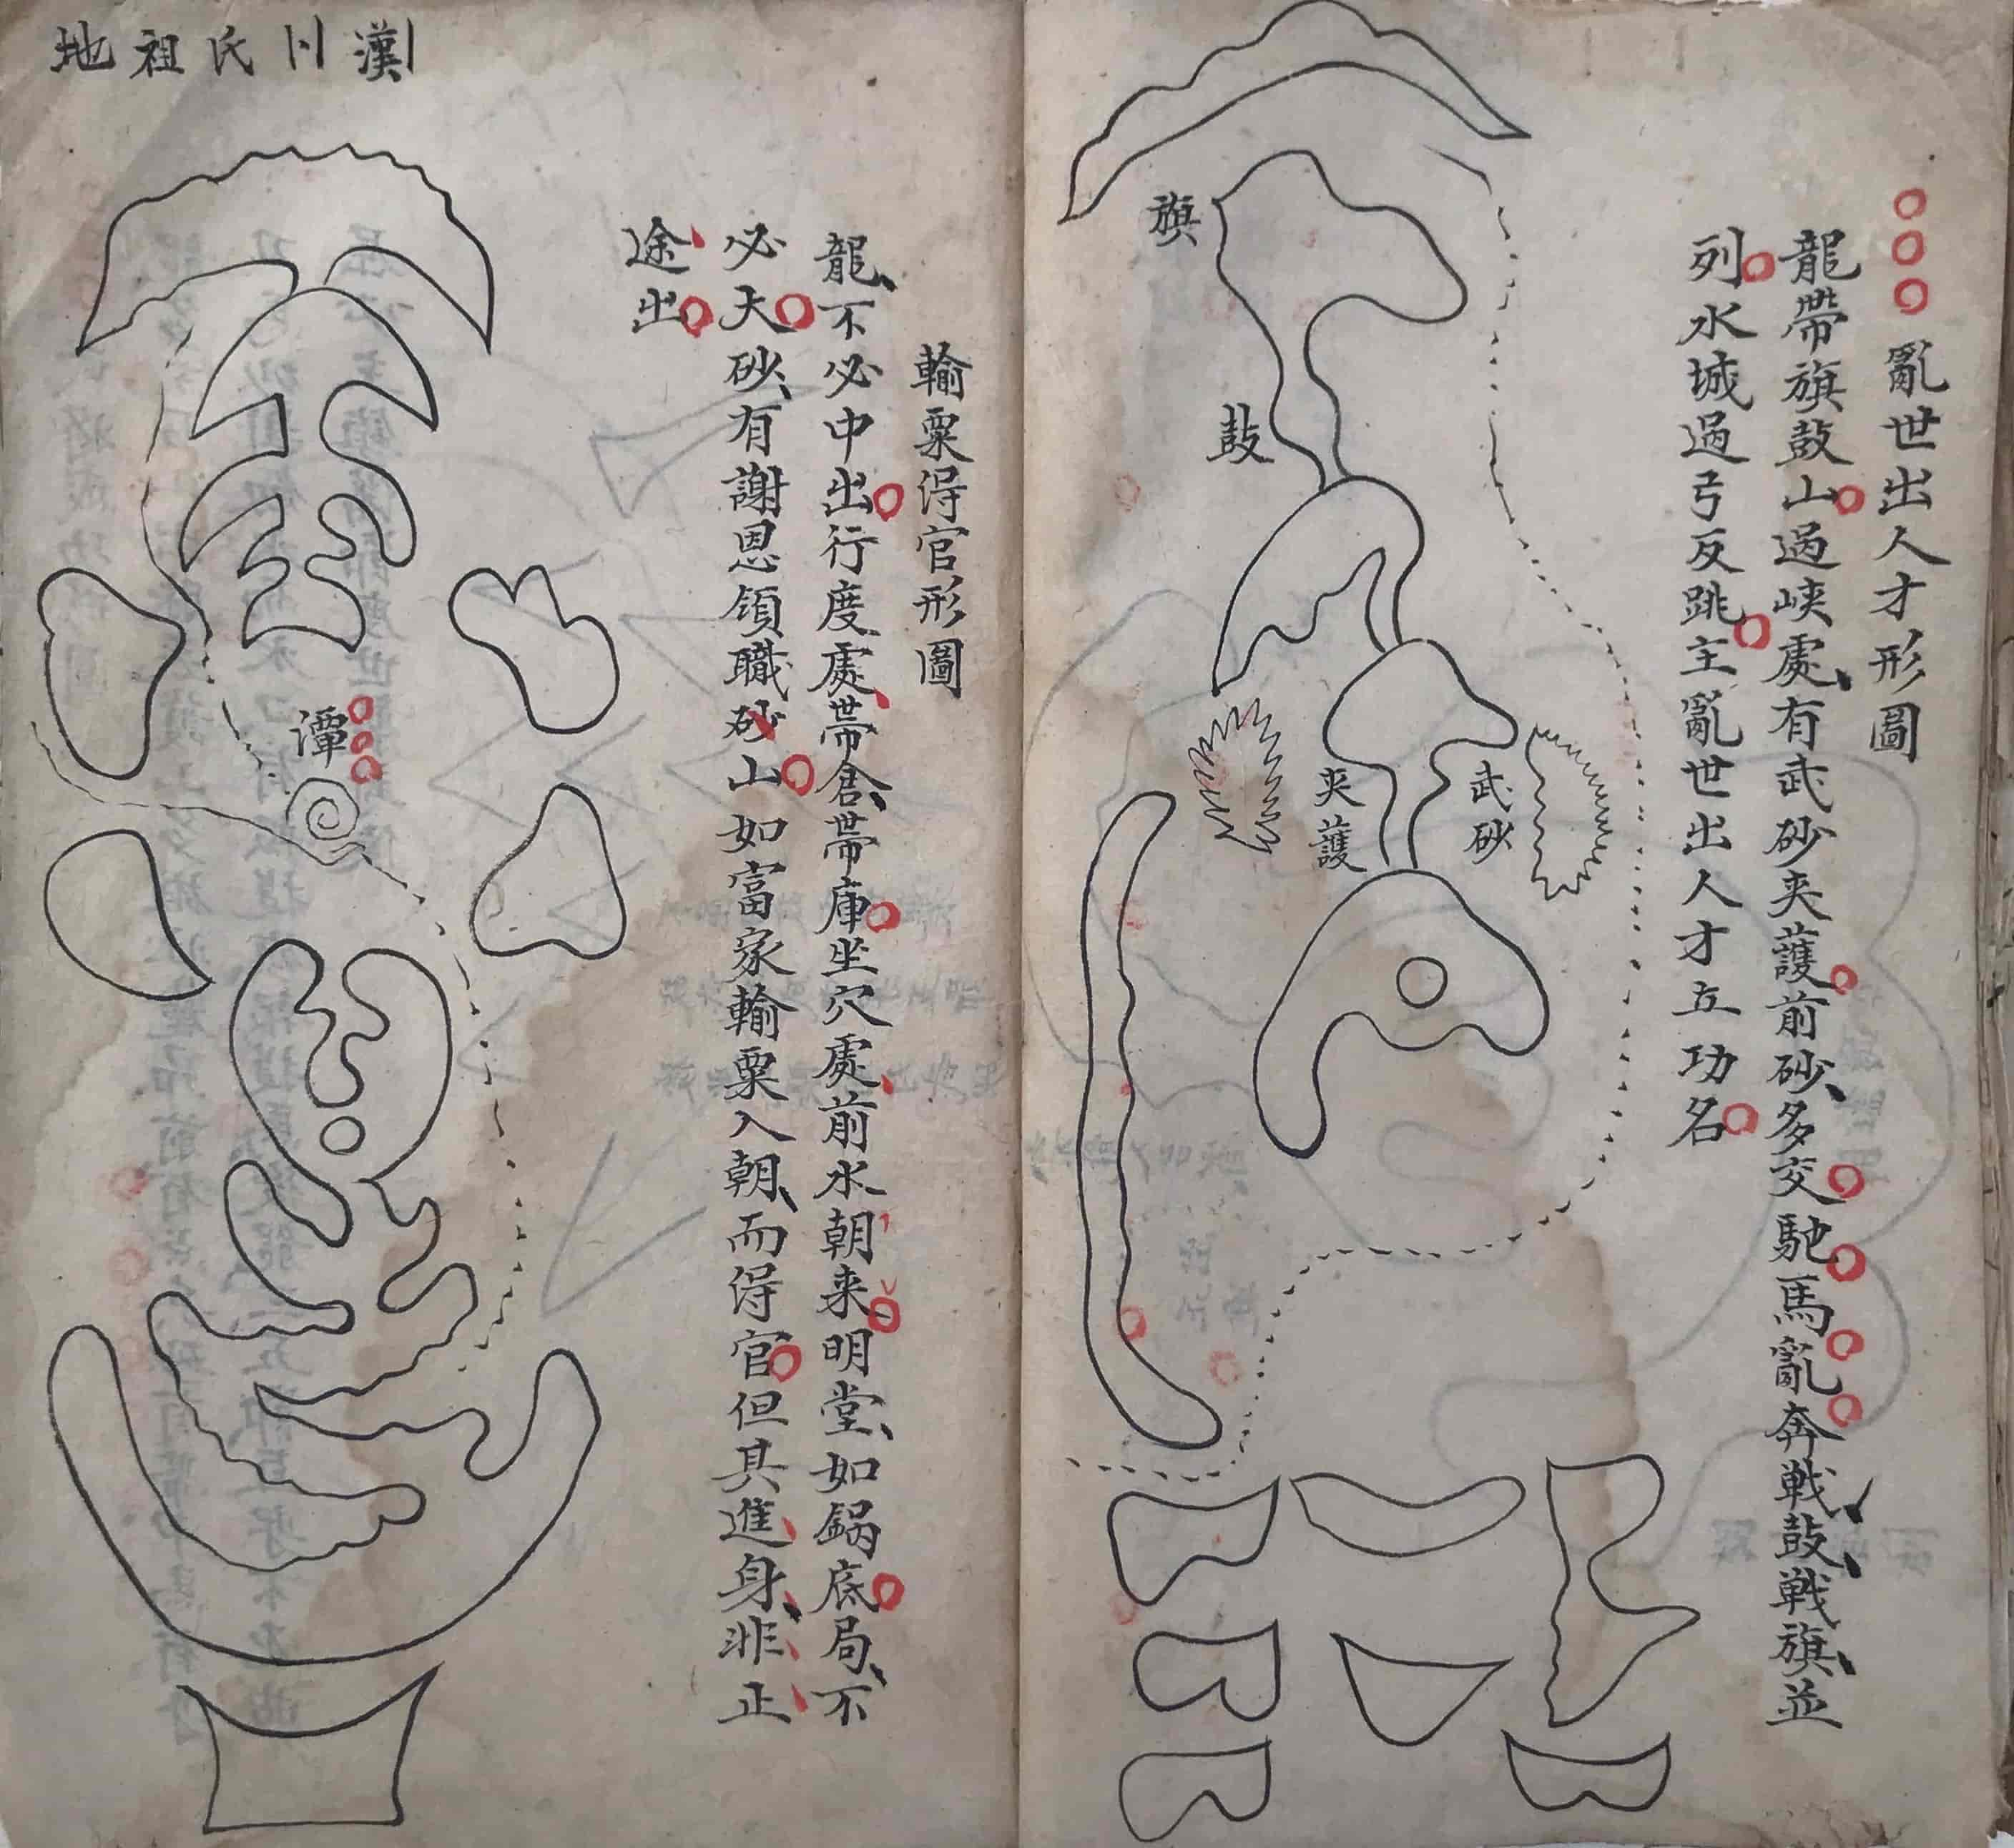 亂世出人才形圖
龍帶旗鼓山過峽處有武砂夾護前砂多交馳馬亂奔戰鼓戰旗並
列水城過弓反跳主亂世出人才立功名
旗
鼓
武砂
夾護
輸粟得官形圖
龍不必中出行度處帶倉帶庫坐穴處前水朝来明堂如鍋底局不
必天砂有謝恩領職砂山如富家輸粟入朝而得官但其進身非正
途出
潭
漢川氏祖地